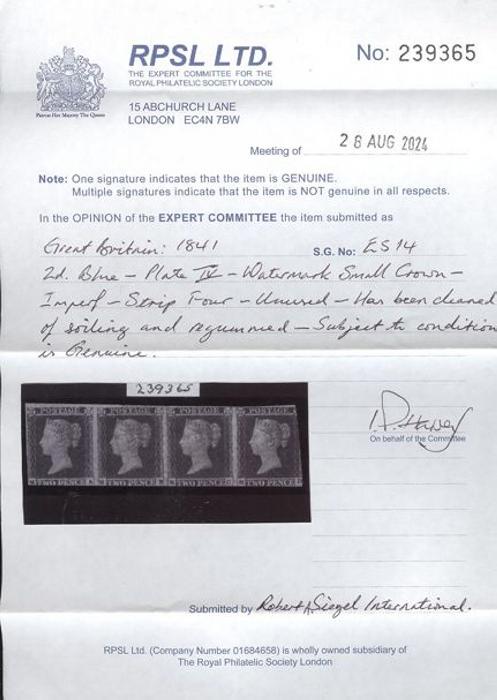 RPSL LTD.
THE EXPERT COMMITTEE FOR THE
ROYAL PHILATELIC SOCIETY LONDON
No: 239365
Patron Her Majesty The Queen
15 ABCHURCH LANE
LONDON EC4N 7BW
Meeting of 28 AUG 2024
Note: One signature indicates that the item is GENUINE.
Multiple signatures indicate that the item is NOT genuine in all respects.
In the OPINION of the EXPERT COMMITTEE the item submitted as
Great Britain: 1841 S.G. No: ES14
2d. Blue – Plate IV – Watermark Small Crown –
Imperf – Strip Four – Unused – Has been cleaned
of soiling and regummed – Subject to condition
is Genuine.
239365
POSTAGE POSTAGE POSTAGE POSTAGE
TWO PENCE TWO PENCE TWO PENCE TWO PENCE
On behalf of the Committee
Submitted by Robert A. Siegel International.
RPSL Ltd. (Company Number 01684658) is wholly owned subsidiary of
The Royal Philatelic Society London